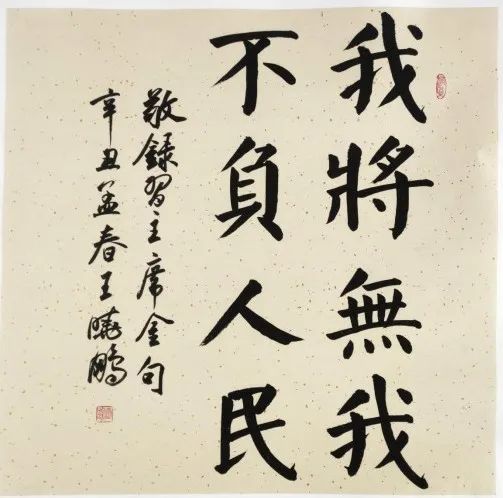 我將無我
不負人民
敬錄習主席金句
辛丑孟春王曉鵬